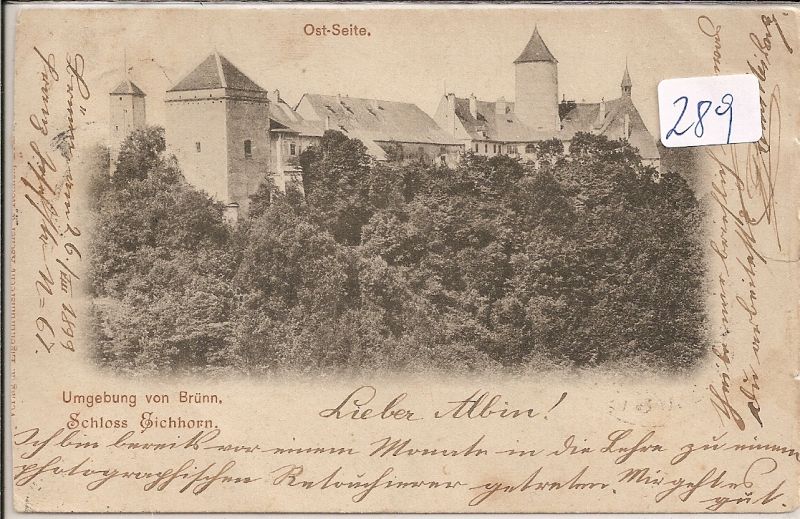 Ost-Seite.
289
Umgebung von Brünn.
Schloss Eichhorn.
Lieber Albin!
Ich bin bereits vor einem Monate in die Lehre zu einem
photographischen Retouchierer getreten. Mir geht es
gut.
Theile mir
Du arbeitest
26./VIII 1899
N= 67.